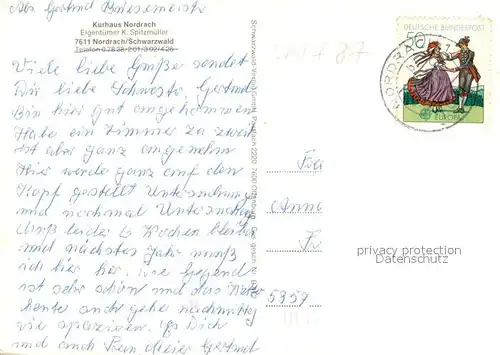 Abs. Gertrud
Kurhaus Nordrach
Eigentümer K. Spitzmüller
7611 Nordrach/Schwarzwald
Telefon 0 78 38 - 2 01 / 3 02 / 4 26
Viele liebe Grüße sendet
Dir liebe Schwester, Gertrud
Bin hier gut angekommen
Habe ein Zimmer zu zweit
ist aber ganz angenehm
Hier werde ganz auf den
Kopf gestellt Untersuchung
und nochmal Untersuchung
muß leider 6 Wochen bleiben
und nächstes Jahr muß
ich hier her. Die Gegend
ist sehr schön und das Wetter
heute auch gehe nachmittag
viel spazieren.
und auch Gertrud
DEUTSCHE BUNDESPOST
50
EUROPA
NORDRACH
Anna
5357
privacy protection
DADPOSTCARDS.DE